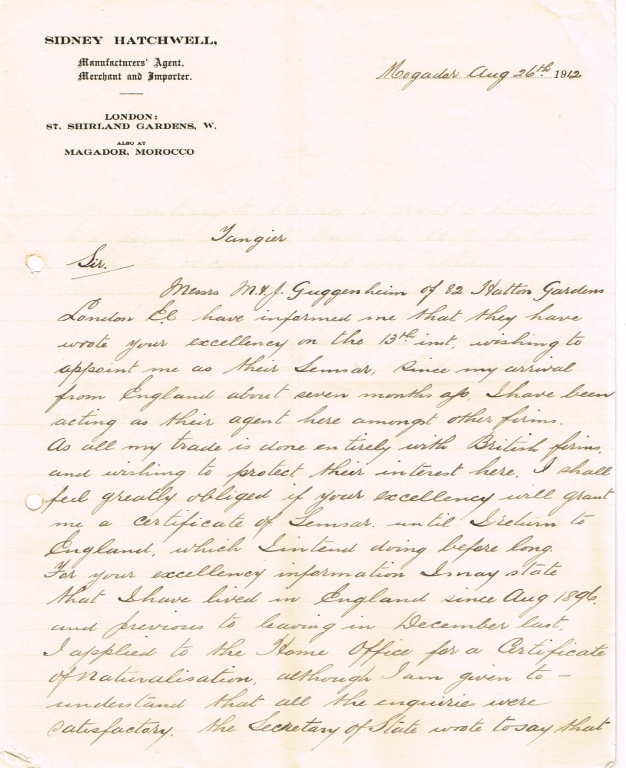 SIDNEY HATCHWELL,
Manufacturers' Agent.
Merchant and Importer.
LONDON:
87, SHIRLAND GARDENS, W.
ALSO AT
MAGADOR, MOROCCO
Mogador Aug 26th 1912
Tangier
Sir.
Messrs M. & J. Guggenheim of 82 Hatton Gardens
London E.C have informed me that they have
wrote your excellency on the 13th inst, wishing to
appoint me as their Semsar, since my arrival
from England about seven months ago. I have been
acting as their agent here amongst other firms.
As all my trade is done entirely with British firms,
and wishing to protect their interest here, I shall
feel greatly obliged if your excellency will grant
me a certificate of Semsar. until I return to
England, which I intend doing before long.
For your excellency information I may state
that I have lived in England since Aug 1896.
and previous to leaving in December last.
I applied to the Home Office for a Certificate
of naturalisation, although I am given to –
understand that all the enquiries were
satisfactory. the Secretary of State wrote to say that